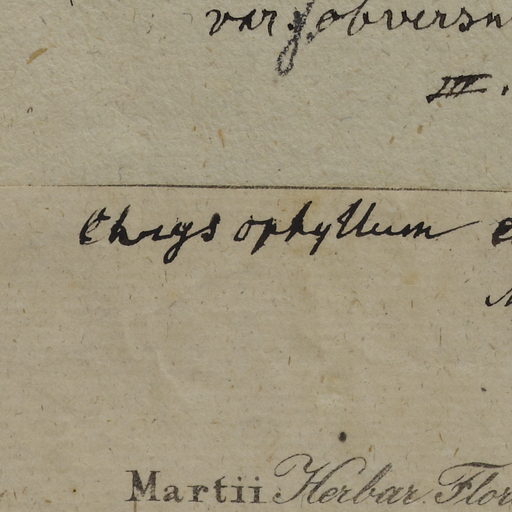 var. obversu
III.
Chrysophyllum
Martii Herbar. Flor